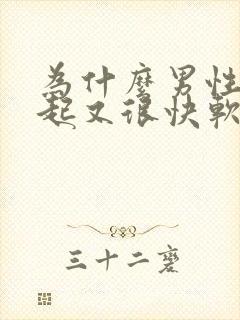 為什麼男性
起又很快軟
三十二磨